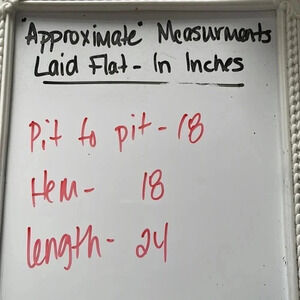 "Approximate" Measurments
Laid Flat - In Inches
Pit to pit - 18
Hem - 18
length - 24